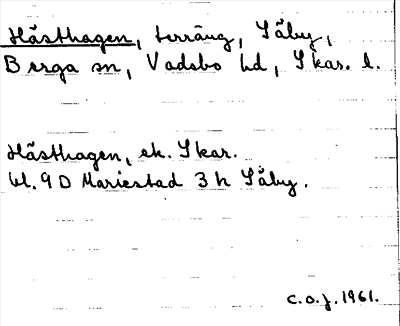 Hästhagen, terräng, Säby,
Berga sn, Vadsbo hd, Skar. l.
Hästhagen, ek. Skar.
bl. 9 D Mariestad 3 h Säby.
C.O.J. 1961.